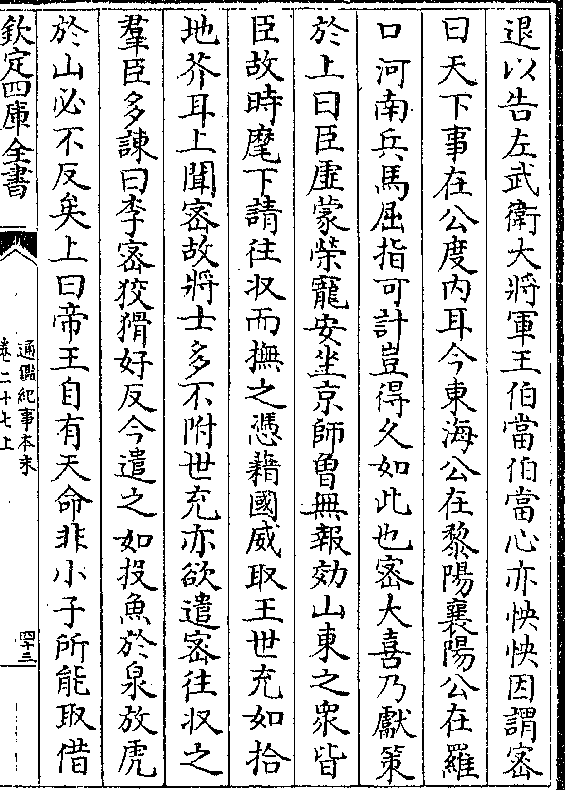 退以告左武衛大將軍王伯當伯當心亦怏怏因謂宻
曰天下事在公度内耳今東海公在黎陽襄陽公在羅
口河南兵馬屈指可計豈得久如此也宻大喜乃獻策
於上曰臣虛蒙榮寵安坐京師曽無報効山東之衆皆
臣故時麾下請往収而撫之憑藉國威取王世充如拾
地芥耳上聞宻故將士多不附世充亦欲遣宻往収之
羣臣多諫曰李宻狡猾好反今遣之如投魚於泉放虎
於山必不反矣上曰帝王自有天命非小子所能取借
欽定四庫全書
通鑑紀事本末
卷二十七上
四十三